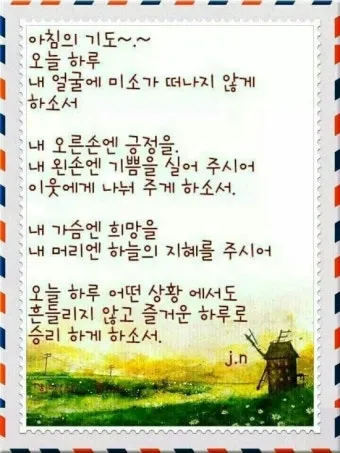 아침의 기도~.~
오늘 하루
내 얼굴에 미소가 떠나지 않게
하소서
내 오른손엔 긍정을.
내 왼손엔 기쁨을 실어 주시어
이웃에게 나눠 주게 하소서.
내 가슴엔 희망을
내 머리엔 하늘의 지혜를 주시어
오늘 하루 어떤 상황 에서도
흔들리지 않고 즐거운 하루로
승리 하게 하소서.
j.n